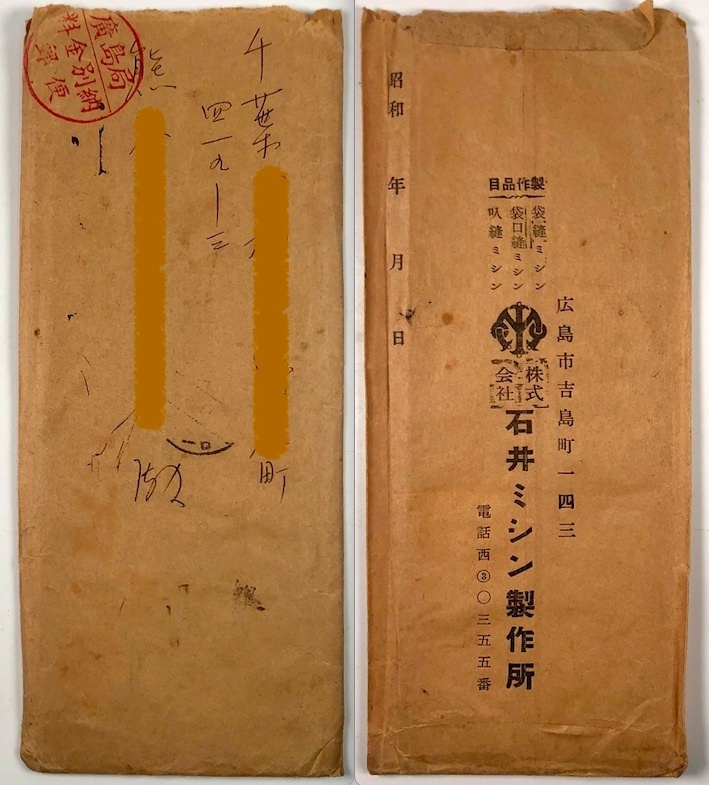 廣島局
料金別納
郵便
千葉
町
四一九ー三
熊
殿
広島市吉島町一四三
製作品目
袋縫ミシン
袋口縫ミシン
叺縫ミシン
株式会社
石井ミシン製作所
電話西③〇三五五番
昭和 年 月 日